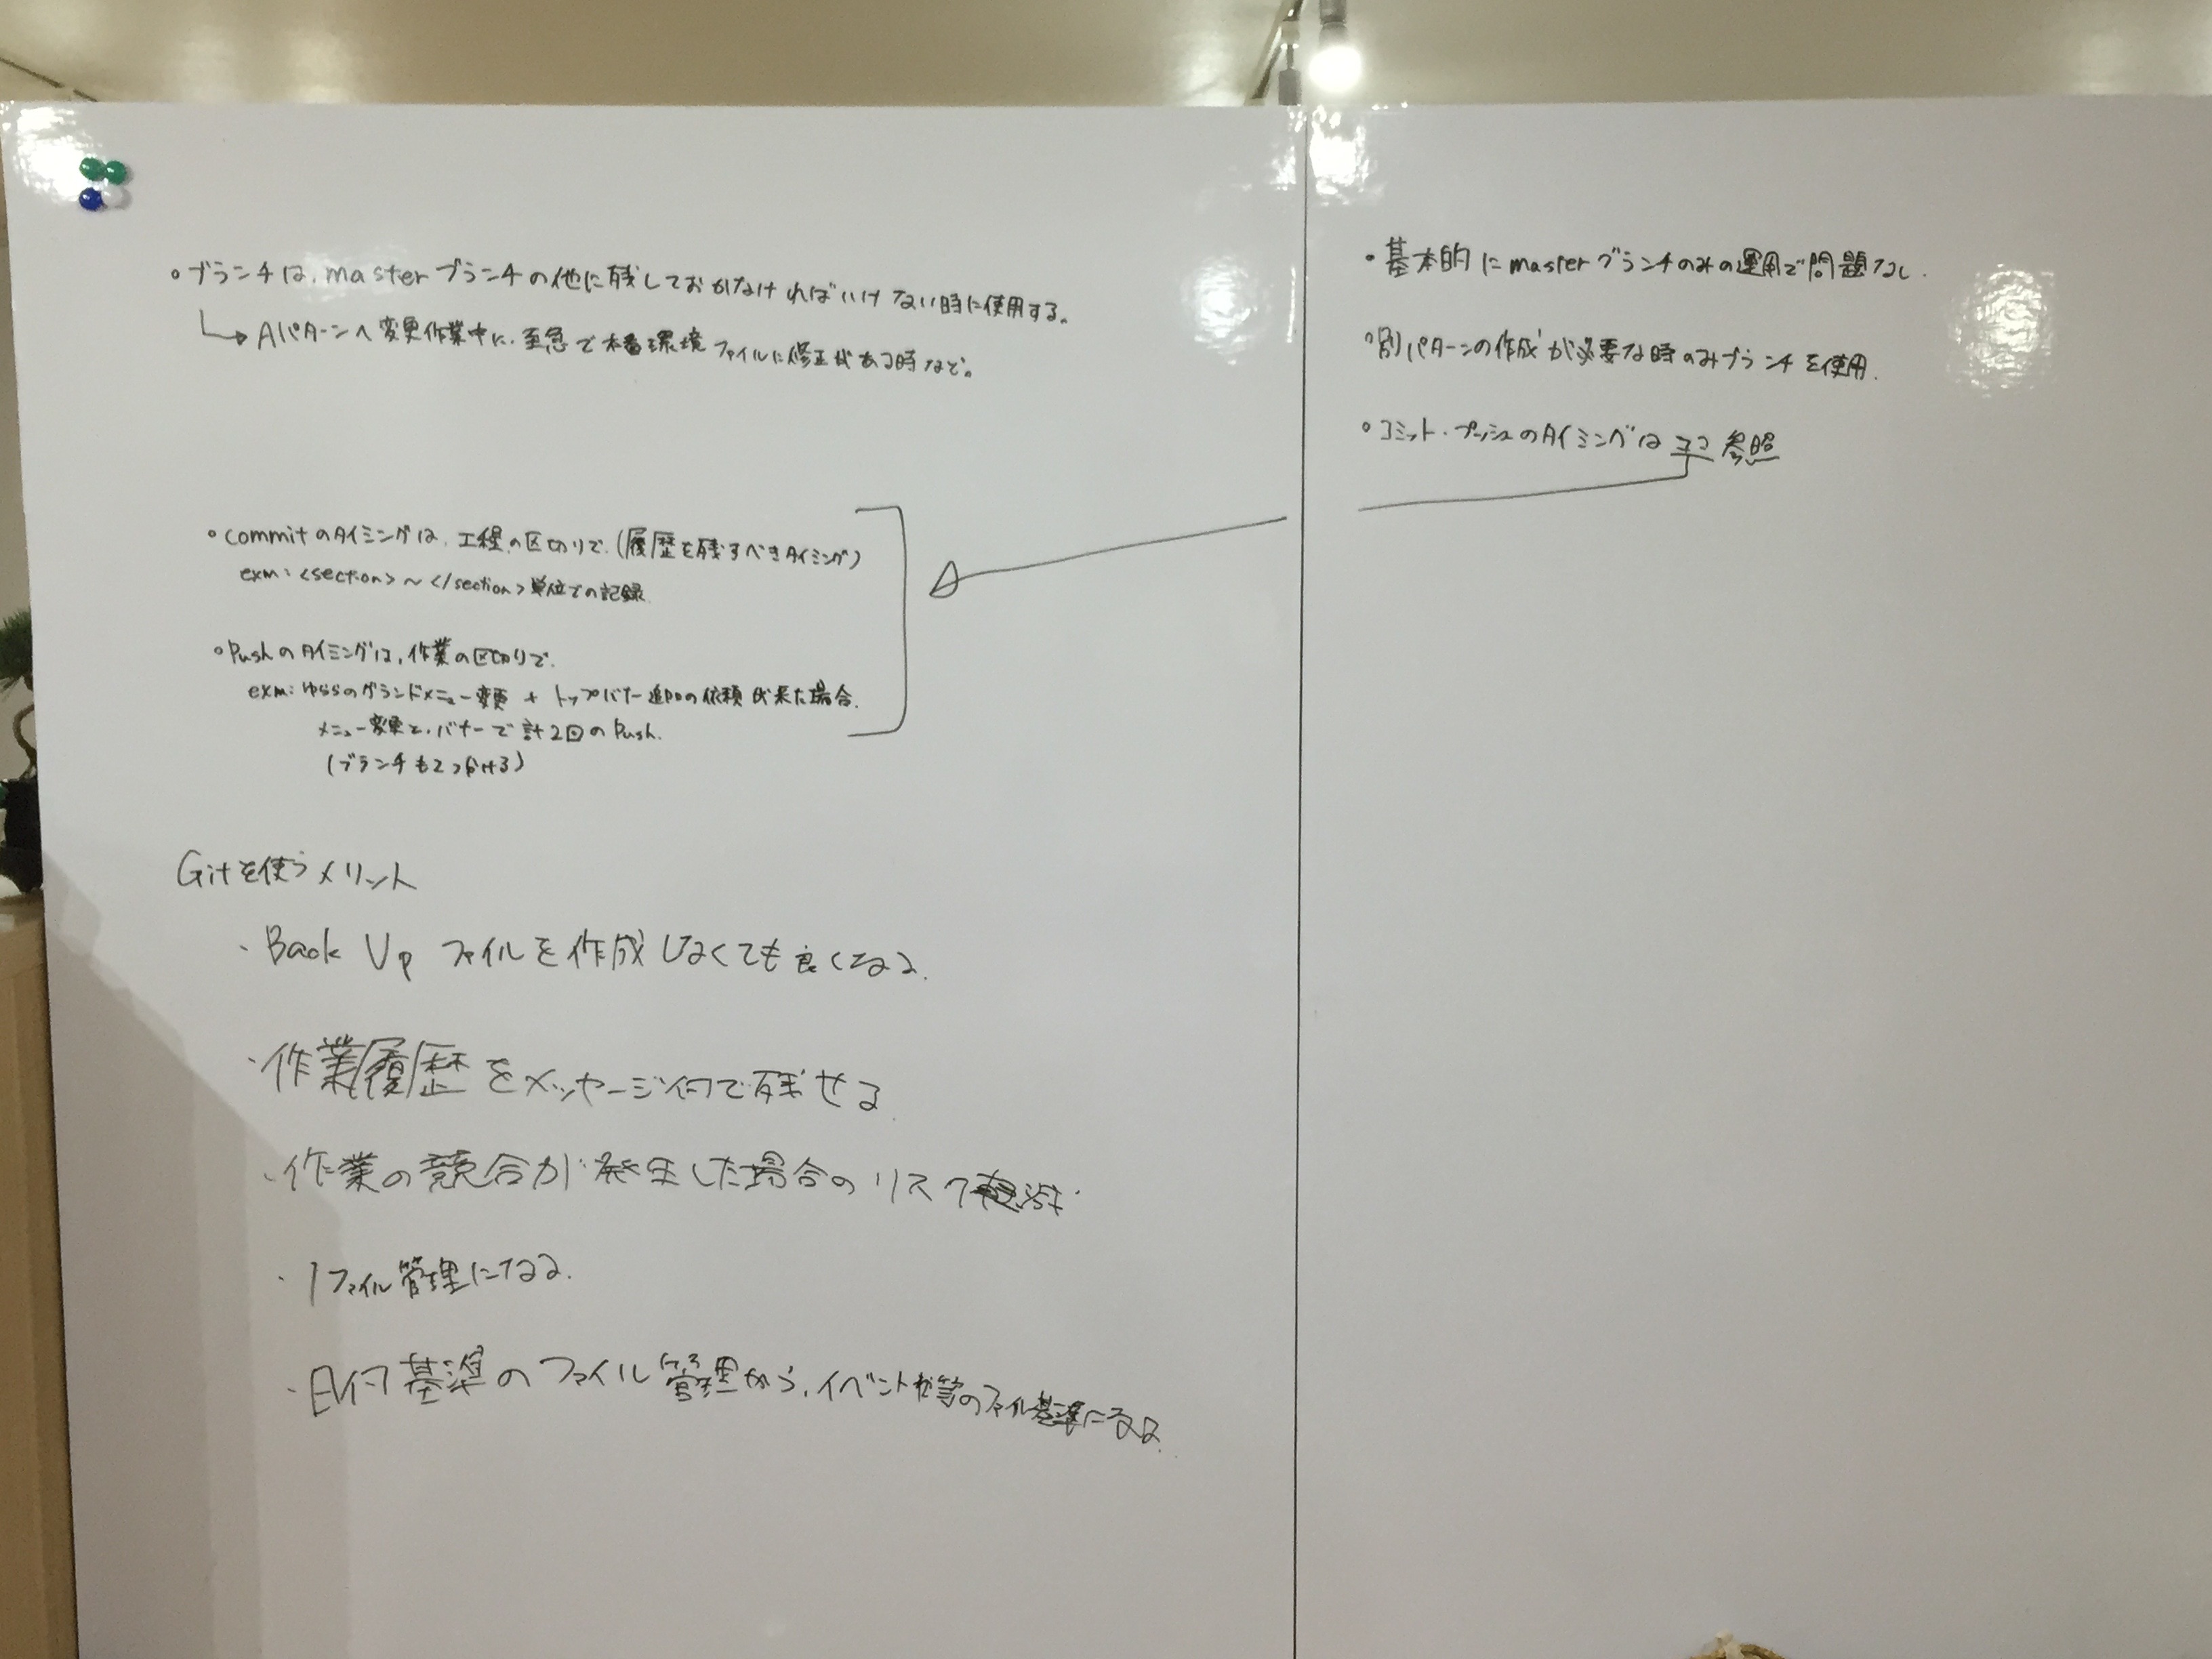 ○ブランチは、masterブランチの他に残しておかなければいけない時に使用する。
Aパターンへ変更作業中に、至急で本番環境ファイルに修正がある時など。
○commitのタイミングは、工程の区切りで.(履歴を残すべきタイミング)
exm:<section>～</section>単位での記録
○Pushのタイミングは、作業の区切りで.
exm:ゆららのグランドメニュー変更 + トップバナー追加の依頼が来た場合.
メニュー変更と、バナーで計2回のPush.
(ブランチも2つ分ける)
Gitを使うメリット
・Back Up ファイルを作成しなくても良くなる.
・作業履歴をメッセージ付で残せる
・作業の競合が発生した場合のリスク軽減
・1ファイル管理になる.
・日付基準のファイル管理から、イベント等のファイル基準になる.
・基本的にmasterブランチのみの運用で問題なし.
○別パターンの作成が必要な時のみブランチを使用.
○コミット・プッシュのタイミングはココ参照